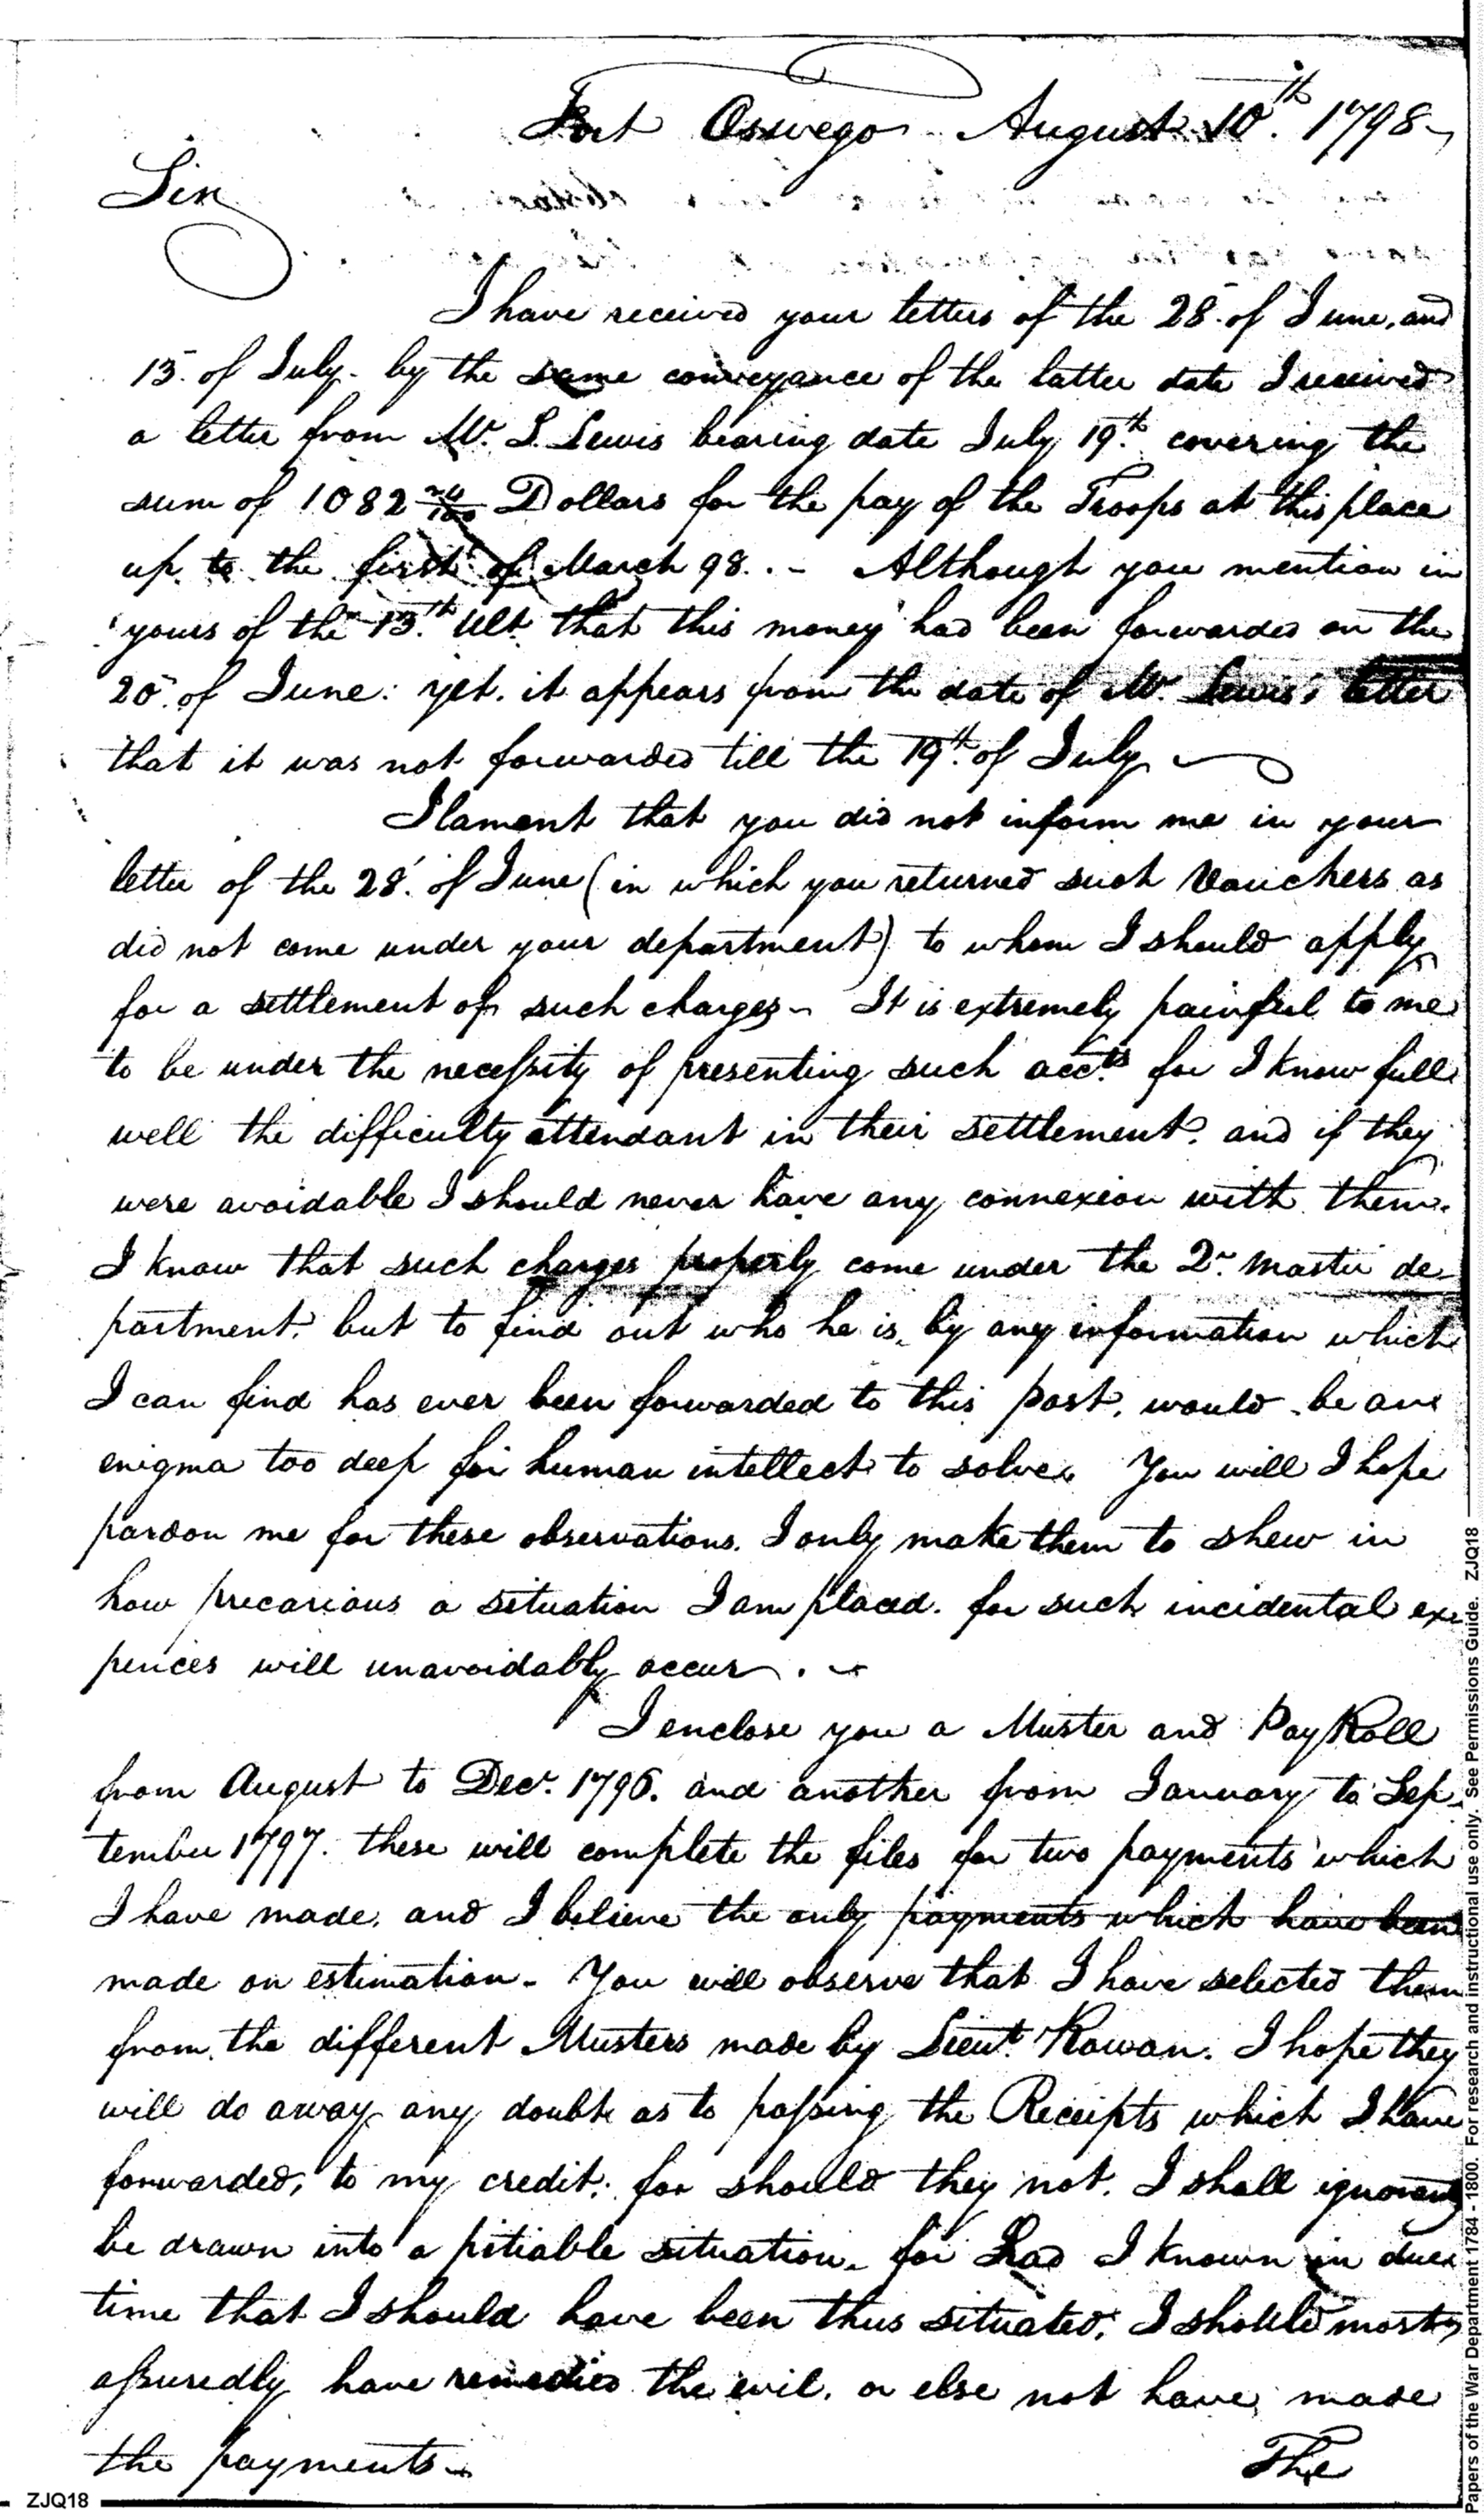 Fort Oswego August 10th. 1798
Sir
I have received your letters of the 28. of June, and
13. of July. by the same conveyance of the latter date I received
a letter from Mr. S. Lewis bearing date July 19th. covering the
sum of 1082 /100 Dollars for the pay of the Troops at this place
up to the first of March 98. - Although you mention in
yours of the 13th. Ult. that this money had been forwarded on the
20. of June: yet. it appears from the date of Mr. Lewis's letter
that it was not forwarded till the 19th. of July
I lament that you did not inform me in your
letter of the 28. of June (in which you returned such Vouchers as
did not come under your department) to whom I should apply
for a settlement of such charges - It is extremely painful to me
to be under the necessity of presenting such acc.ts for I know full
well the difficulty attendant in their settlement. and if they
were avoidable I should never have any connexion with them.
I know that such charges properly come under the Qr. master de-
partment. but to find out who he is, by any information which
I can find has ever been forwarded to this post, would be an
enigma too deep for human intellect to solve. You will I hope
pardon me for these observations. I only make them to shew in
how precarious a situation I am placed. for such incidental ex-
pences will unavoidably occur. -
I enclose you a Muster and Pay Roll
from August to Decr. 1796. and another from January to Sep-
tember 1797. these will complete the files for two payments which
I have made, and I believe the only payments which have been
made on estimation - You will observe that I have selected them
from the different Musters made by Lieut. Rowan. I hope they
will do away any doubt as to passing the Receipts which I have
forwarded, to my credit; for should they not. I shall ignorantly
be drawn into a pitiable situation. for had I known in due
time that I should have been thus situated; I should most
assuredly have remedied the evil. or else not have made
the payments -
The
ZJQ18
Papers of the War Department 1784 - 1800. For research and instructional use only. See Permissions Guide. ZJQ18